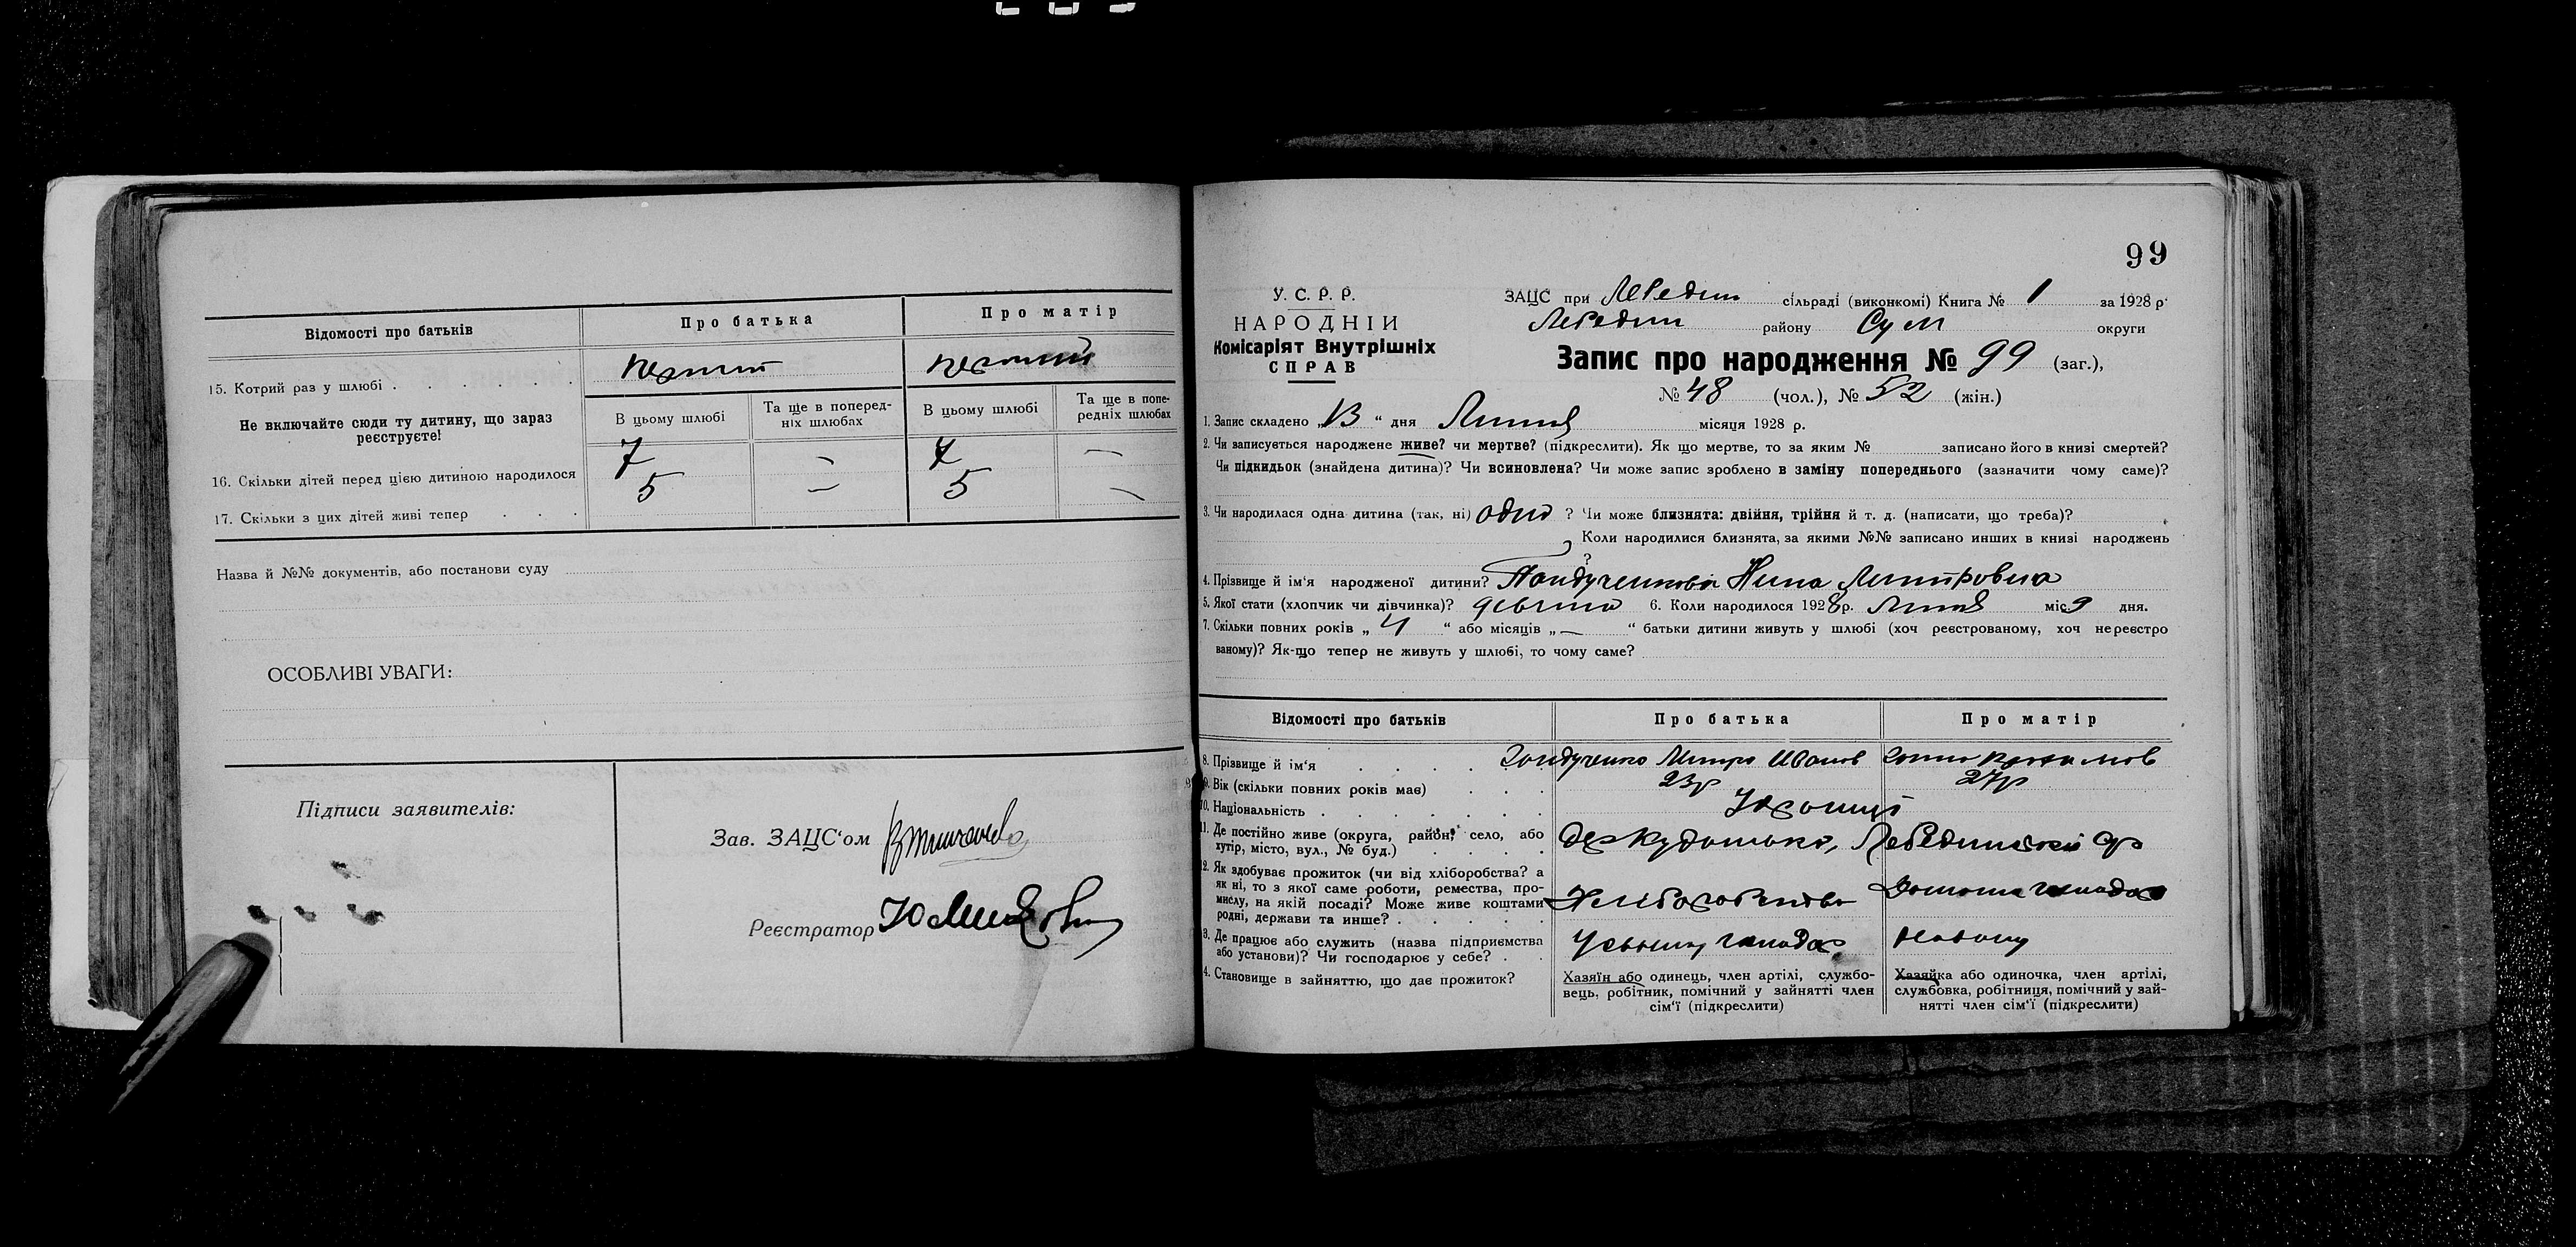 Відомості про батьків
Про батька
Про матір
15. Котрий раз у шлюбі
перший
перший
Не включайте сюди ту дитину, що зараз
реєструєте!
В цьому шлюбі
Та ще в поперед-
ніх шлюбах
В цьому шлюбі
Та ще в попе-
редніх шлюбах
16. Скільки дітей перед цією дитиною народилося
7 — 7 —
17. Скільки з цих дітей живі тепер
5 — 5 —
Назва й №№ документів, або постанови суду
ОСОБЛИВІ УВАГИ:
Підписи заявителів:
Зав. ЗАЦС‘ом
Реєстратор
99
У. С. Р. Р.
НАРОДНІЙ
Комісаріят Внутрішніх
СПРАВ
ЗАЦС при Лебедин сільраді (виконкомі) Книга № 1 за 1928 р.
Лебедин району Сум округи
Запис про народження № 99 (заг.),
№ 48 (чол.), № 52 (жін.)
1. Запис складено „13“ дня Липня місяця 1928 р.
2. Чи записується народжене живе? чи мертве? (підкреслити). Як що мертве, то за яким № записано його в книзі смертей?
Чи підкидьок (знайдена дитина)? Чи всиновлена? Чи може запис зроблено в заміну попереднього (зазначити чому саме)?
3. Чи народилася одна дитина (так, ні) одно ? Чи може близнята: двійня, трійня й т. д. (написати, що треба)?
Коли народилися близнята, за якими №№ записано инших в книзі народжень
?
4. Прізвище й ім‘я народженої дитини? Нина Митровна
5. Якої стати (хлопчик чи дівчинка)? 6. Коли народилося 1928 р. Липня міс. 9 дня.
7. Скільки повних років „ 4 “ або місяців „ — “ батьки дитини живуть у шлюбі (хоч реєстрованому, хоч нереєстро
ваному)? Як-що тепер не живуть у шлюбі, то чому саме?
Відомості про батьків
Про батька
Про матір
8. Прізвище й ім‘я
Митро Иванов
9. Вік (скільки повних років має)
23р
27р
10. Національність
11. Де постійно живе (округа, район, село, або
хутір, місто, вул., № буд.)
12. Як здобуває прожиток (чи від хліборобства? а
як ні, то з якої саме роботи, ремества, про-
мислу, на якій посаді? Може живе коштами
родні, держави та инше?
Хліборобство
13. Де працює або служить (назва підприємства
або установи)? Чи господарює у себе?
14. Становище в зайняттю, що дає прожиток?
Хазяїн або одинець, член артілі, службо-
вець, робітник, помічний у зайнятті член
сім‘ї (підкреслити)
Хазяйка або одиночка, член артілі,
службовка, робітниця, помічний у зай-
нятті член сім‘ї (підкреслити)